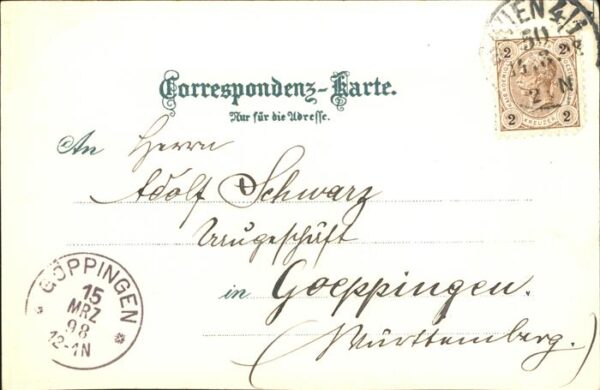 Correspondenz-Karte.
Nur für die Adresse.
An Herrn
Adolf Schwarz
in Goeppingen.
(Württemberg.)
WIEN 4/1
50
2 N
2 2
2 KREUZER 2
GÖPPINGEN
15
MRZ
98
12-1N